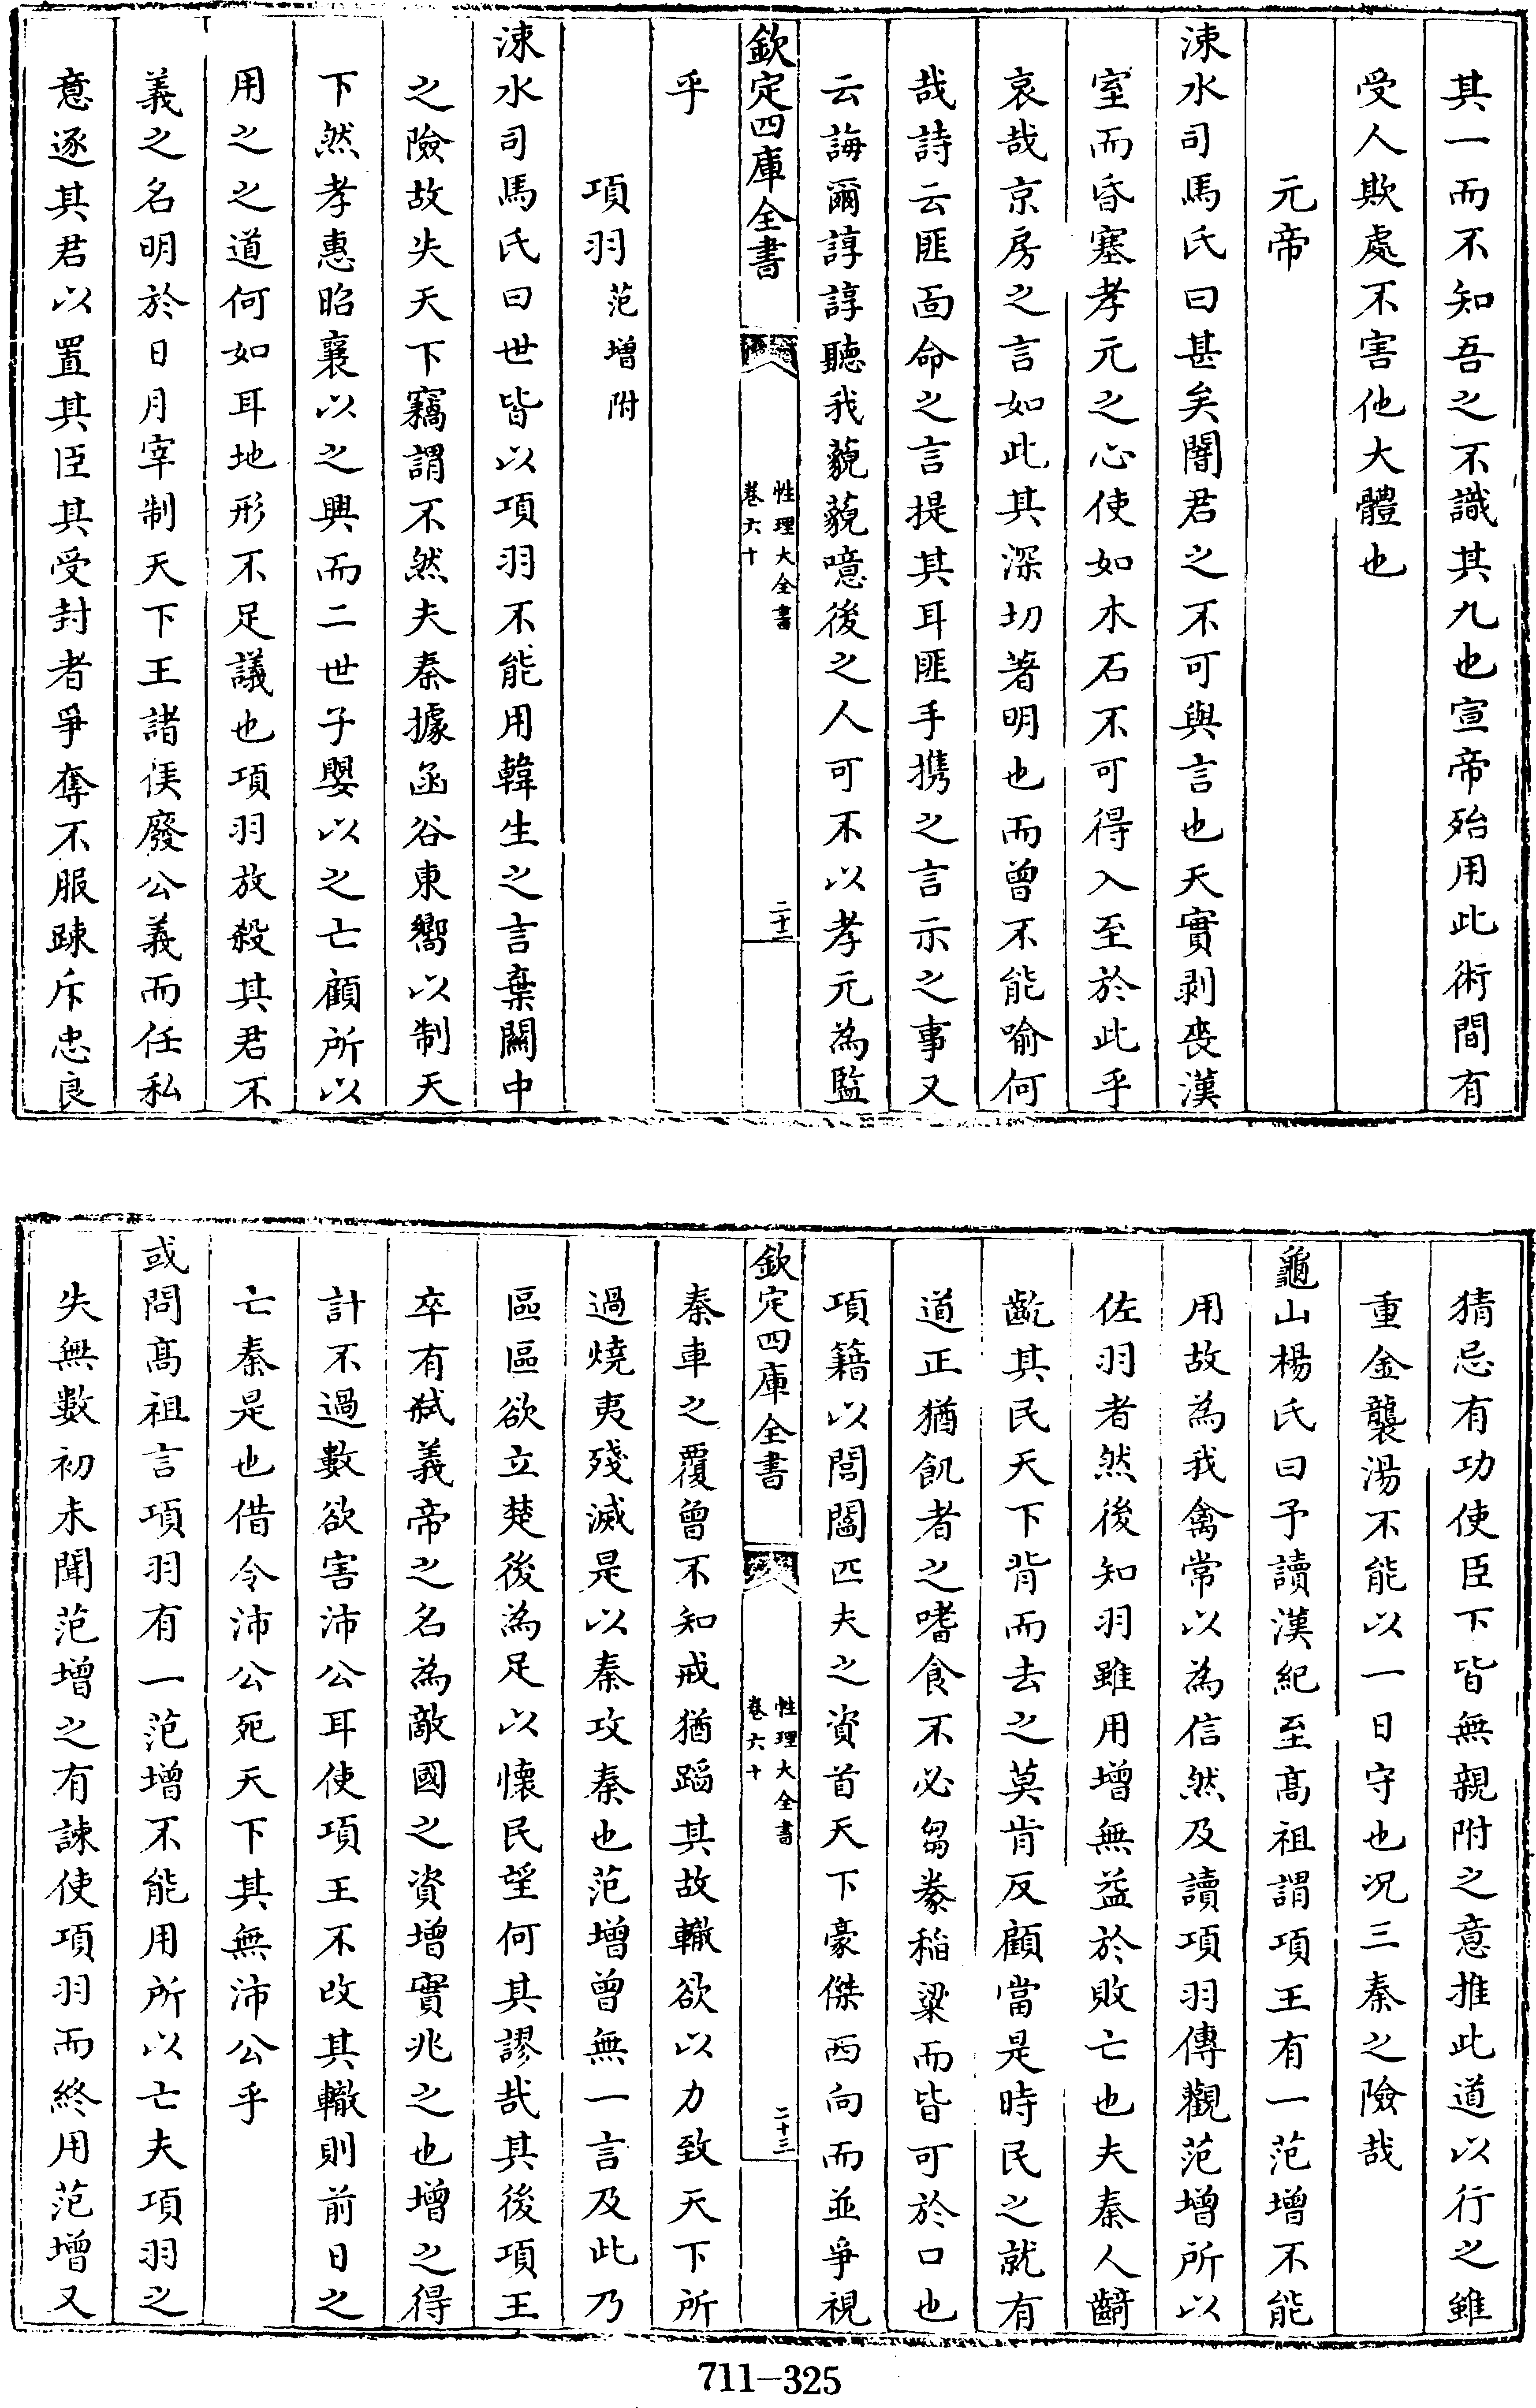 其一而不知吾之不識其九也宣帝殆用此術間有
受人欺處不害他大體也
元帝
涑水司馬氏曰甚矣闇君之不可與言也天實剥喪漢
室而昏塞孝元之心使如木石不可得入至於此乎
哀哉京房之言如此其深切著明也而曾不能喻何
哉詩云匪面命之言提其耳匪手攜之言示之事又
云誨爾諄諄聽我藐藐噫後之人可不以孝元為監
欽定四庫全書
性理大全書
卷六十
二十二
乎
項羽范增附
涑水司馬氏曰世皆以項羽不能用韓生之言棄關中
之險故失天下竊謂不然夫秦據函谷東嚮以制天
下然孝惠昭襄以之興而二世子嬰以之亡顧所以
用之之道何如耳地形不足議也項羽放殺其君不
義之名明於日月宰制天下王諸侯廢公義而任私
意逐其君以置其臣其受封者爭奪不服踈斥忠良
猜忌有功使臣下皆無親附之意推此道以行之雖
重金襲湯不能以一日守也况三秦之險哉
龜山楊氏曰予讀漢紀至髙祖謂項王有一范增不能
用故為我禽常以為信然及讀項羽傳觀范增所以
佐羽者然後知羽雖用增無益於敗亡也夫秦人齮
齕其民天下背而去之莫肯反顧當是時民之就有
道正猶飢者之嗜食不必芻豢稻粱而皆可於口也
項籍以閭閻匹夫之資首天下豪傑西向而並爭視
欽定四庫全書
性理大全書
卷六十
二十三
秦車之覆曾不知戒猶蹈其故轍欲以力致天下所
過燒夷殘滅是以秦攻秦也范增曾無一言及此乃
區區欲立楚後為足以懷民望何其謬哉其後項王
卒有弑義帝之名為敵國之資增實兆之也增之得
計不過數欲害沛公耳使項王不改其轍則前日之
亡秦是也借令沛公死天下其無沛公乎
或問髙祖言項羽有一范增不能用所以亡夫項羽之
失無數初未聞范增之有諫使項羽而終用范增又
711-325